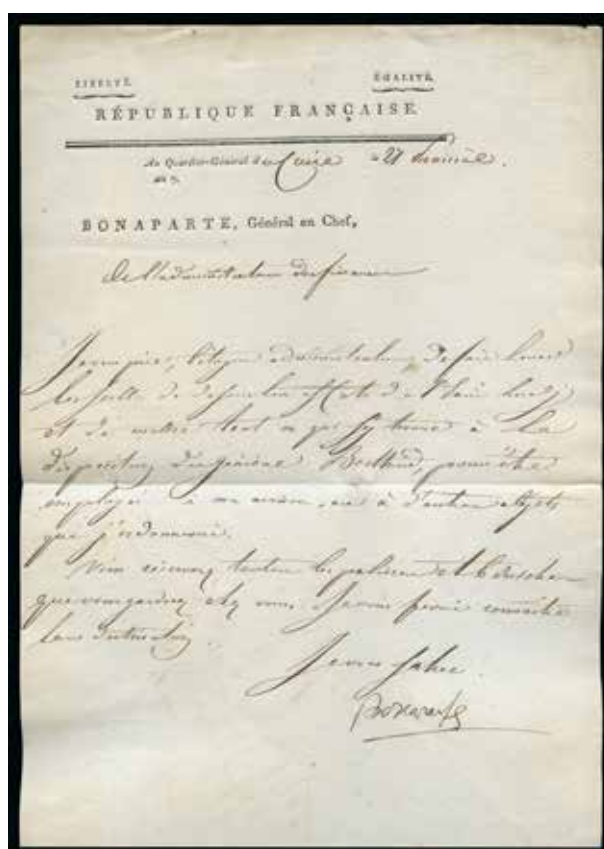 LIBERTÉ. ÉGALITÉ.
RÉPUBLIQUE FRANÇAISE.
Au Quartier-Général du Caire le 27
an 7.
BONAPARTE, Général en Chef,
à l'administration des finances
Je vous prie, citoyen administrateur, de faire lever
les scellés
et de mettre tout ce qui s'y trouve à la
disposition du général pour être
employé à ma maison, ou à d'autres objets
que j'ordonnerai.
Vous toutes les pelisses et
que vous garderez chez vous. Je vous ferai connaître
leur destination
Je vous salue
Bonaparte